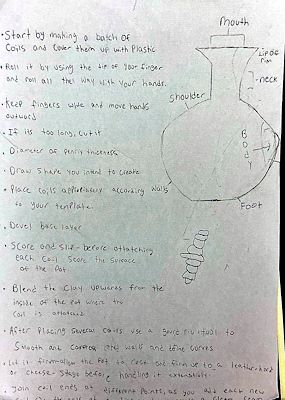 Mouth
• Start by making a batch of
Coils and Cover them up with Plastic
Lip or
Rim
• Roll it by using the tip of your finger
and roll all the way with your hands.
neck
Shoulder
• Keep fingers wide and move hands
outword
• If its too long, cut it
Body
• Diameter of pencil thickness
• Draw Shape you intend to create
• Place coils appropriately according walls
to your template.
Foot
• Devel base layer
• Score and slip - before attatching
each Coil. Score the Surface
of the Pot
• Blend the Clay upwares from the
inside of the Pot where the
Coil is attatched
• After Placing several Coils use a
Smooth and Compress the wall and define Curves
• Let it firm allow the Pot to rest and firm up to a leather-hard
or cheese stage before handling it extensively.
• Join Coil ends at different Points, as you add each new